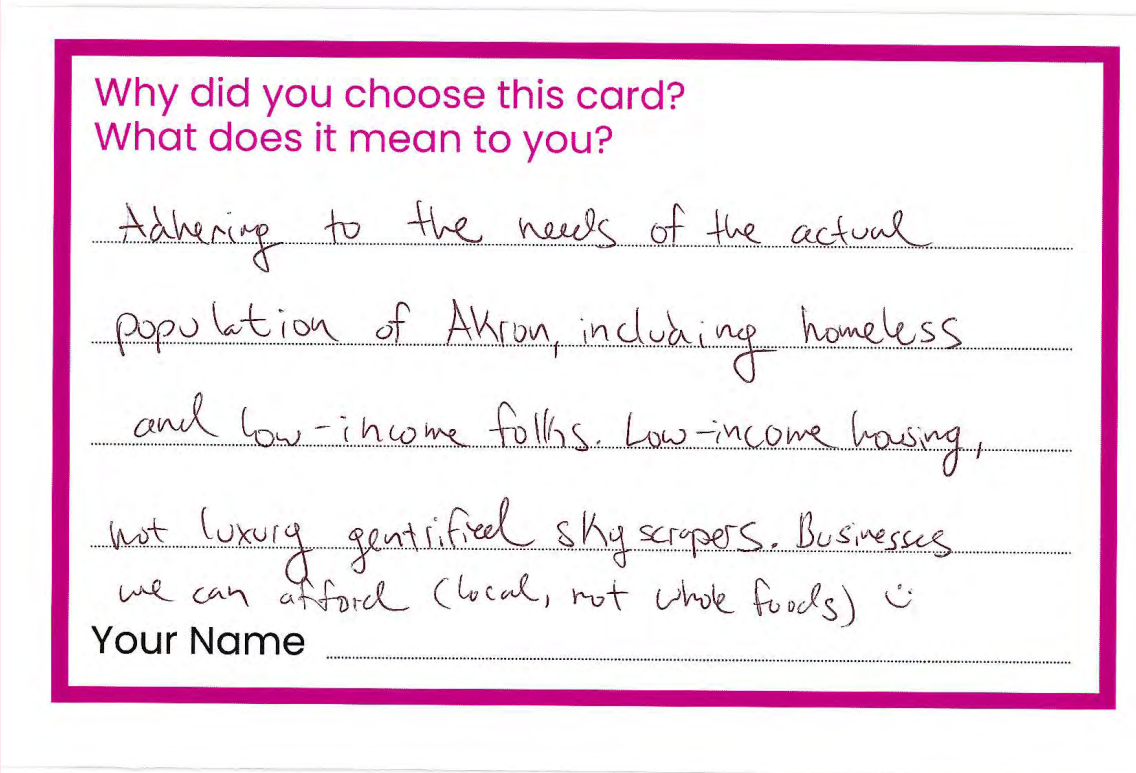 Why did you choose this card?
What does it mean to you?
Adhering to the needs of the actual
population of Akron, including homeless
and low-income folks. Low-income housing,
not luxury gentrified skyscrapers. Businesses
we can afford (local, not whole foods) :)
Your Name